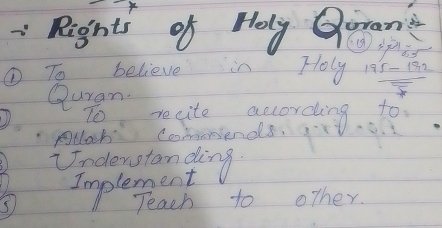 Rights of Holy Quran:-
① To believe in Holy 195-192
Quran.
To recite according to
Allah commends.
Understanding.
Implement
⑤ Teach to other.